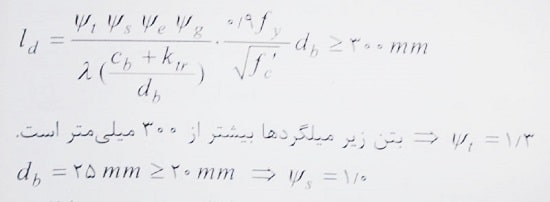 l_d = (ψ_t ψ_s ψ_e ψ_g) / (λ ((c_b + k_tr) / d_b)) . (۰/۹ f_y / √f'_c) d_b ≥ ۳۰۰ mm
بتن زیر میلگردها بیشتر از ۳۰۰ میلی‌متر است. ⇒ ψ_t = ۱/۳
d_b = ۲۵ mm ≥ ۲۰ mm ⇒ ψ_s = ۱/۰